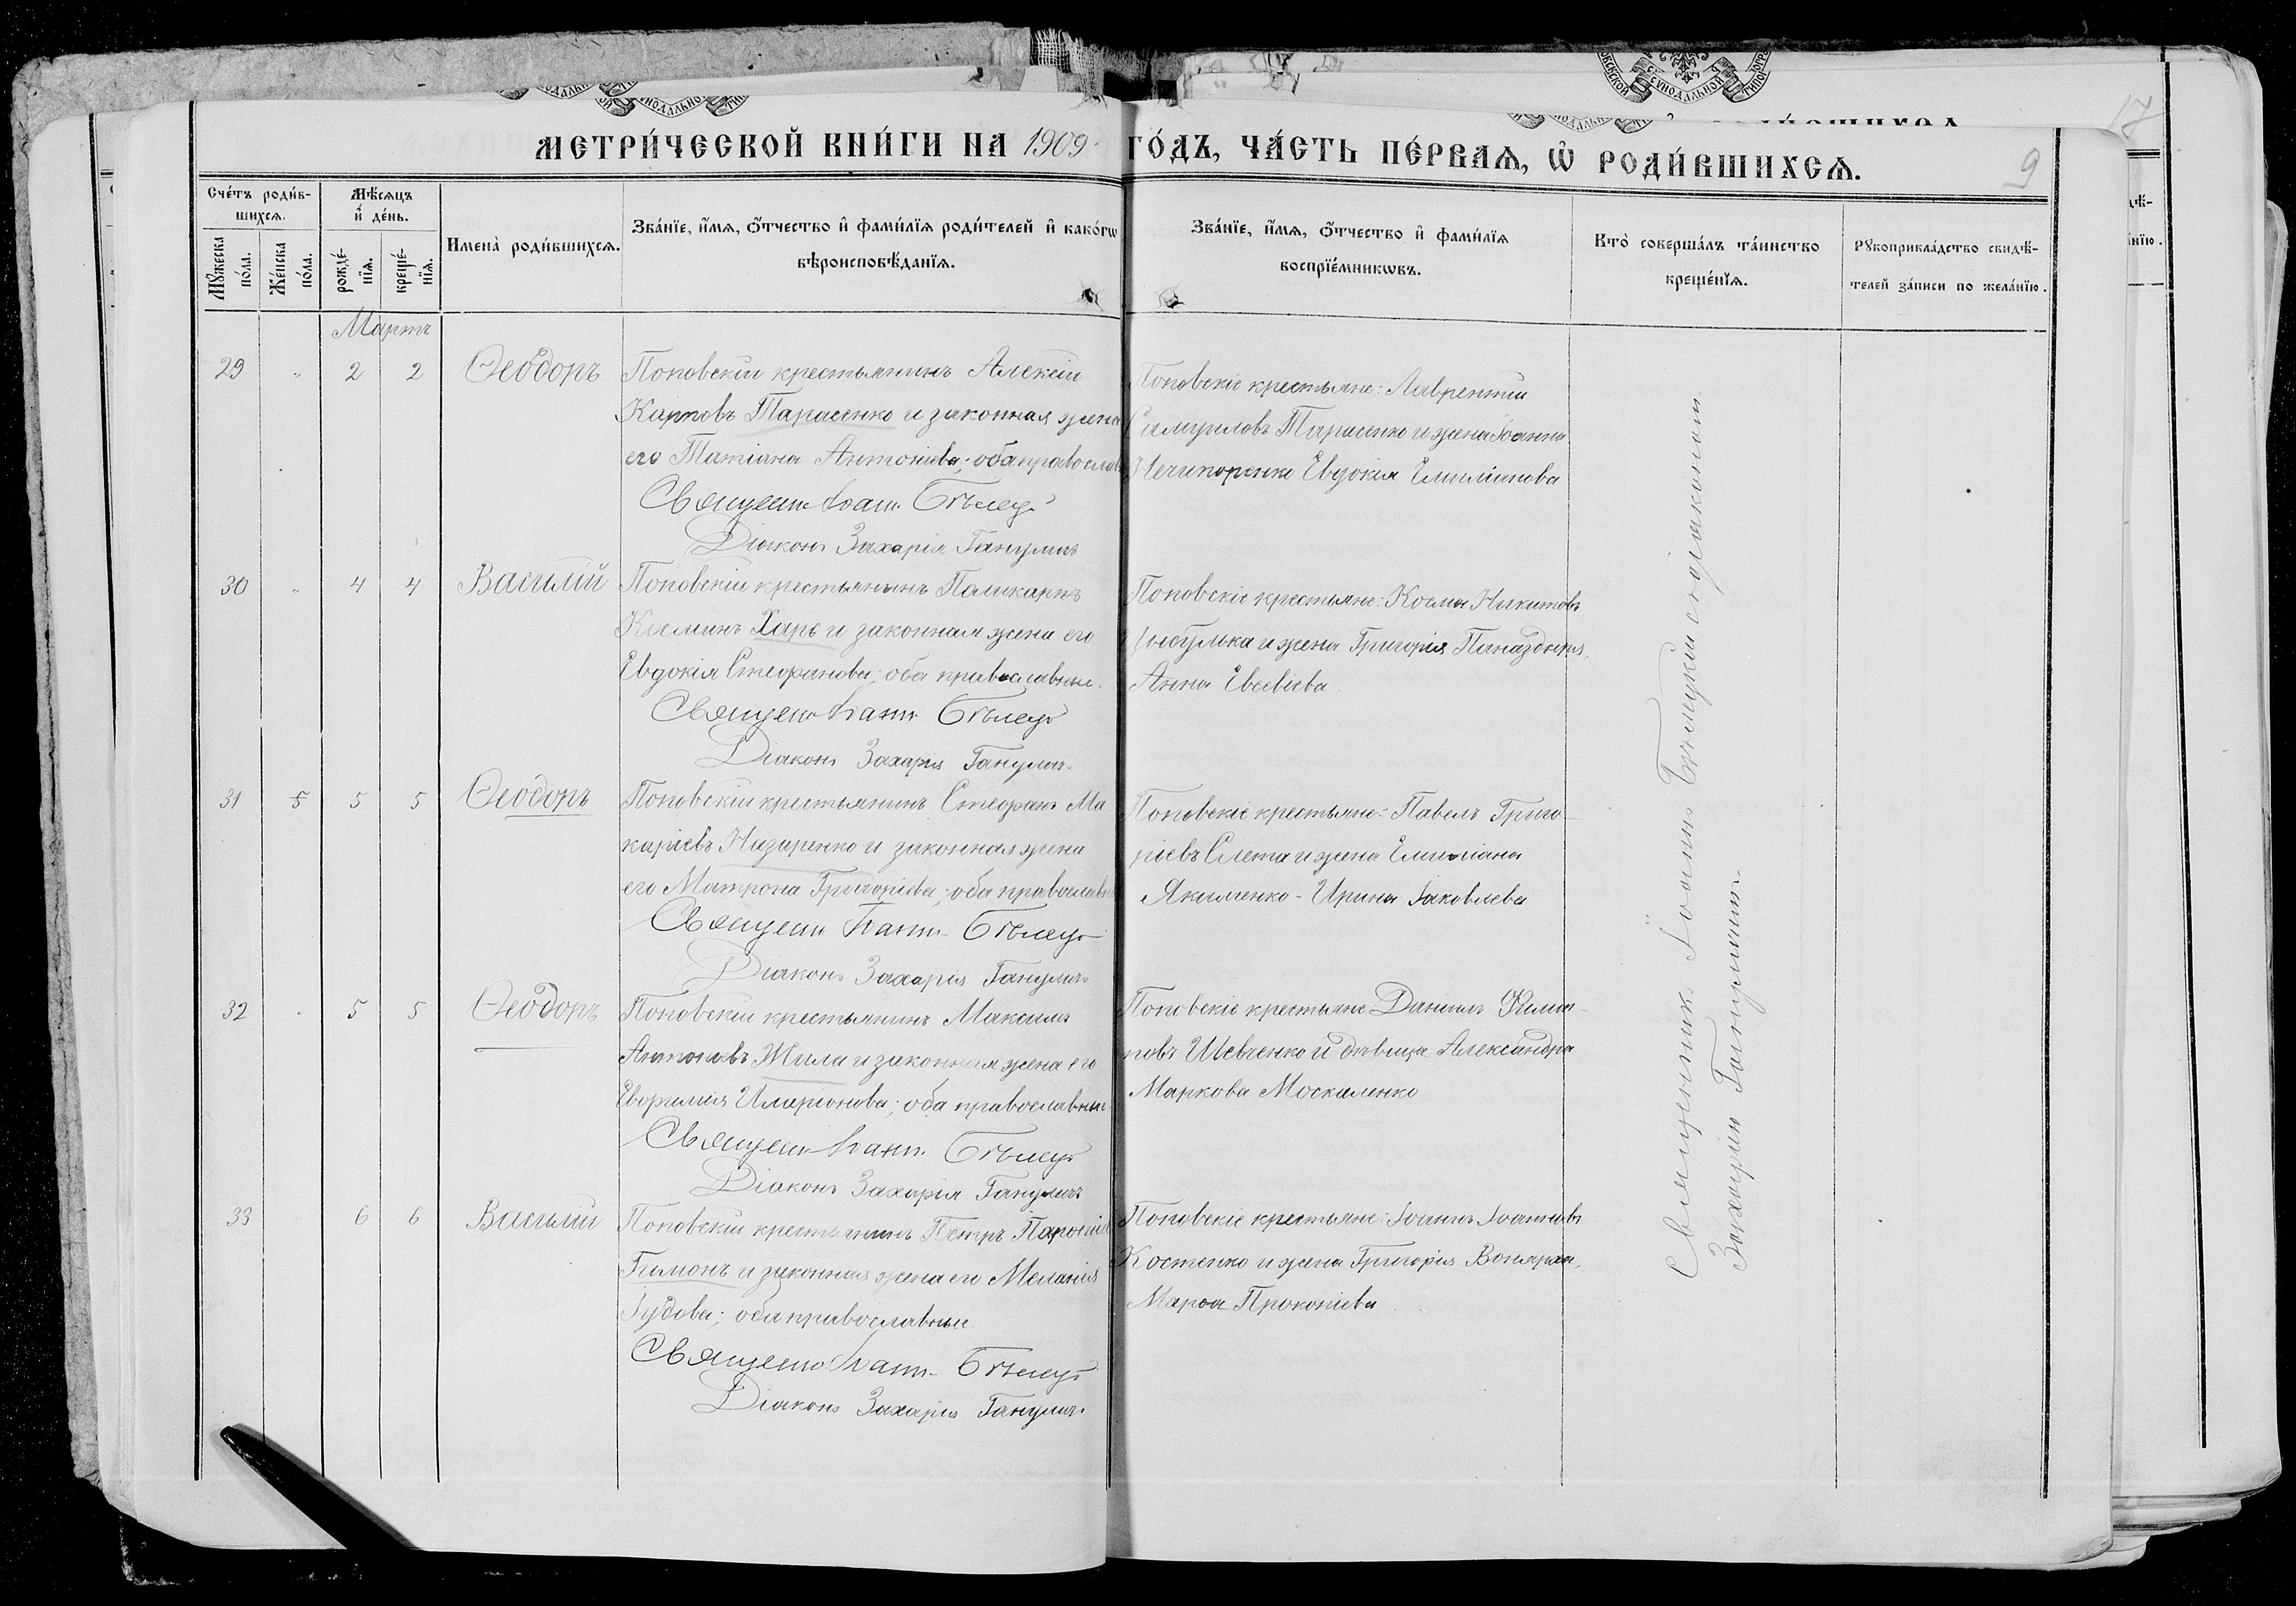 МЕТРИ́ЧЕСКОЙ КНИ́ГИ НА 1909 ГО́ДЪ, ЧА́СТЬ ПЕ́РВАЯ, Ѡ҆ РОДИ́ВШИХСѦ.
9
17
Сче́тъ роди́в-
шихсѧ.
Мѣ́сѧцъ
и҆ де́нь.
Мꙋ́жеска
по́ла.
Же́нска
по́ла.
рожде́-
нїѧ.
креще́-
нїѧ.
Имена̀ роди́вшихсѧ.
Зва́нїе, и҆́мѧ, ѻ҆́тчество и҆ фами́лїѧ роди́телей и҆ како́гѡ
вѣроисповѣ́данїѧ.
Зва́нїе, и҆́мѧ, ѻ҆́тчество и҆ фами́лїѧ
воспрїе́мникѡвъ.
Кто̀ соверша́лъ та́инство
креще́нїѧ.
Рꙋкоприкла́дство свидѣ́-
телей за́писи по жела́нїю.
Мартъ
29 " 2 2 Ѳеодоръ
Поповскій крестьянинъ Алексій
Карповъ Тарасенко и законная жена
его Татіана Антоніева; оба православ
Священ Іоан Бѣлец
Діаконъ Захарія Ганулич
Поповскіе крестьяне: Лаврентій
Самуиловъ Тарасенко и жена Іоанна
Нечипоренко Евдокія Емиліанова
30 " 4 4 Василій
Поповскій крестьянинъ Поликарпъ
Косминъ Харь и законная жена его
Евдокія Стефанова; оба православные.
Священ Іоан Бѣлец
Діаконъ Захарія Ганулич
Поповскіе крестьяне: Косма Никитовъ
Цыбулька и жена Григорія
Анна Евсевіева.
31 5 5 5 Ѳеодоръ
Поповскій крестьянинъ Стефанъ Ма
каріевъ Назаренко и законная жена
его Матрона Григоріева; оба православн
Священ Іоан Бѣлец
Діаконъ Захарія Ганулич
Поповскіе крестьяне: Павелъ Григо-
ріевъ Слета и жена Емиліана
Якименко - Ирина Іаковлева
32 " 5 5 Ѳеодоръ
Поповскій крестьянинъ Максимъ
Антоніевъ Жила и законная жена его
Евфимія Иларіонова; оба православные
Священ Іоан Бѣлец
Діаконъ Захарія Ганулич
Поповскіе крестьяне Даніилъ Филип-
повъ Шевченко и дѣвица Александра
Маркова Москаленко
33 " 6 6 Василій
Поповскій крестьянинъ Петръ Парѳеніе
и законная жена его Меланія
оба православные
Священ Іоан Бѣлец
Діаконъ Захарія Ганулич
Поповскіе крестьяне: Іоаннъ Іоанновъ
Костенко и жена Григорія
Марѳа Прокопіева
Священникъ Іоаннъ Бѣлецкій съ діакономъ
Захаріею Гануличемъ